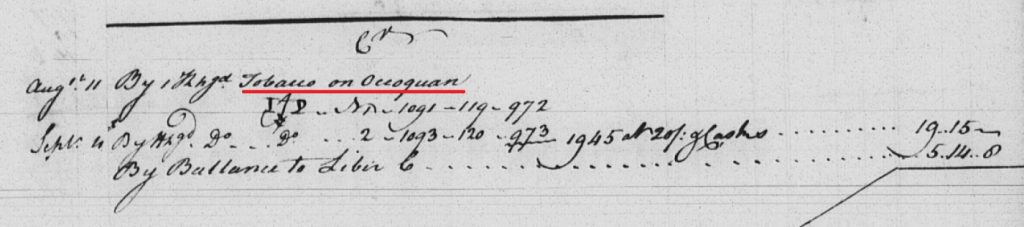 Cr
Augst. 11 By 1 Hhgd Tobacco on Occoquan
1091 - 119 - 972
Sept. 4 By Hhgd. Do. Do. 2 - 1093 - 120 - 973 1945 at 20/. 19.15
By Ballance to Liber C 5.14.8